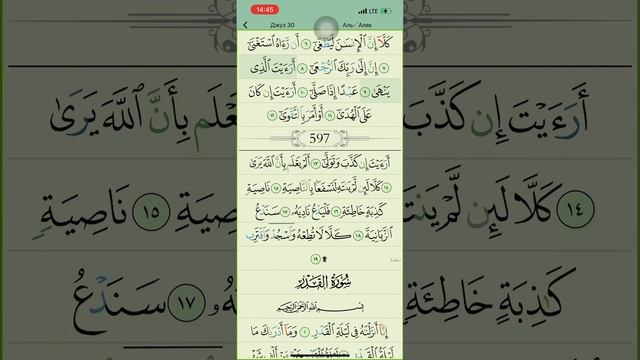 14:45 LTE
Джуз 30 Аль-`Аляк
كَلَّآ إِنَّ ٱلْإِنسَٰنَ لَيَطْغَىٰٓ ٦ أَن رَّءَاهُ ٱسْتَغْنَىٰٓ
٧ إِنَّ إِلَىٰ رَبِّكَ ٱلرُّجْعَىٰٓ ٨ أَرَءَيْتَ ٱلَّذِى
يَنْهَىٰ ٩ عَبْدًا إِذَا صَلَّىٰٓ ١٠ أَرَءَيْتَ إِن كَانَ
عَلَى ٱلْهُدَىٰٓ ١١ أَوْ أَمَرَ بِٱلتَّقْوَىٰٓ ١٢
597
أَرَءَيْتَ إِن كَذَّبَ وَتَوَلَّىٰٓ ١٣ أَلَمْ يَعْلَم بِأَنَّ ٱللَّهَ يَرَىٰ
١٤ كَلَّا لَئِن لَّمْ يَنتَهِ لَنَسْفَعًۢا بِٱلنَّاصِيَةِ ١٥ نَاصِيَةٍ
كَٰذِبَةٍ خَاطِئَةٍ ١٦ فَلْيَدْعُ نَادِيَهُۥ ١٧ سَنَدْعُ
ٱلزَّبَانِيَةَ ١٨ كَلَّا لَا تُطِعْهُ وَٱسْجُدْ وَٱقْتَرِب
۩ ١٩
سُورَةُ ٱلْقَدْرِ
بِسْمِ ٱللَّهِ ٱلرَّحْمَٰنِ ٱلرَّحِيمِ
إِنَّآ أَنزَلْنَٰهُ فِى لَيْلَةِ ٱلْقَدْرِ ١ وَمَآ أَدْرَىٰكَ مَا
لَيْلَةُ ٱلْقَدْرِ